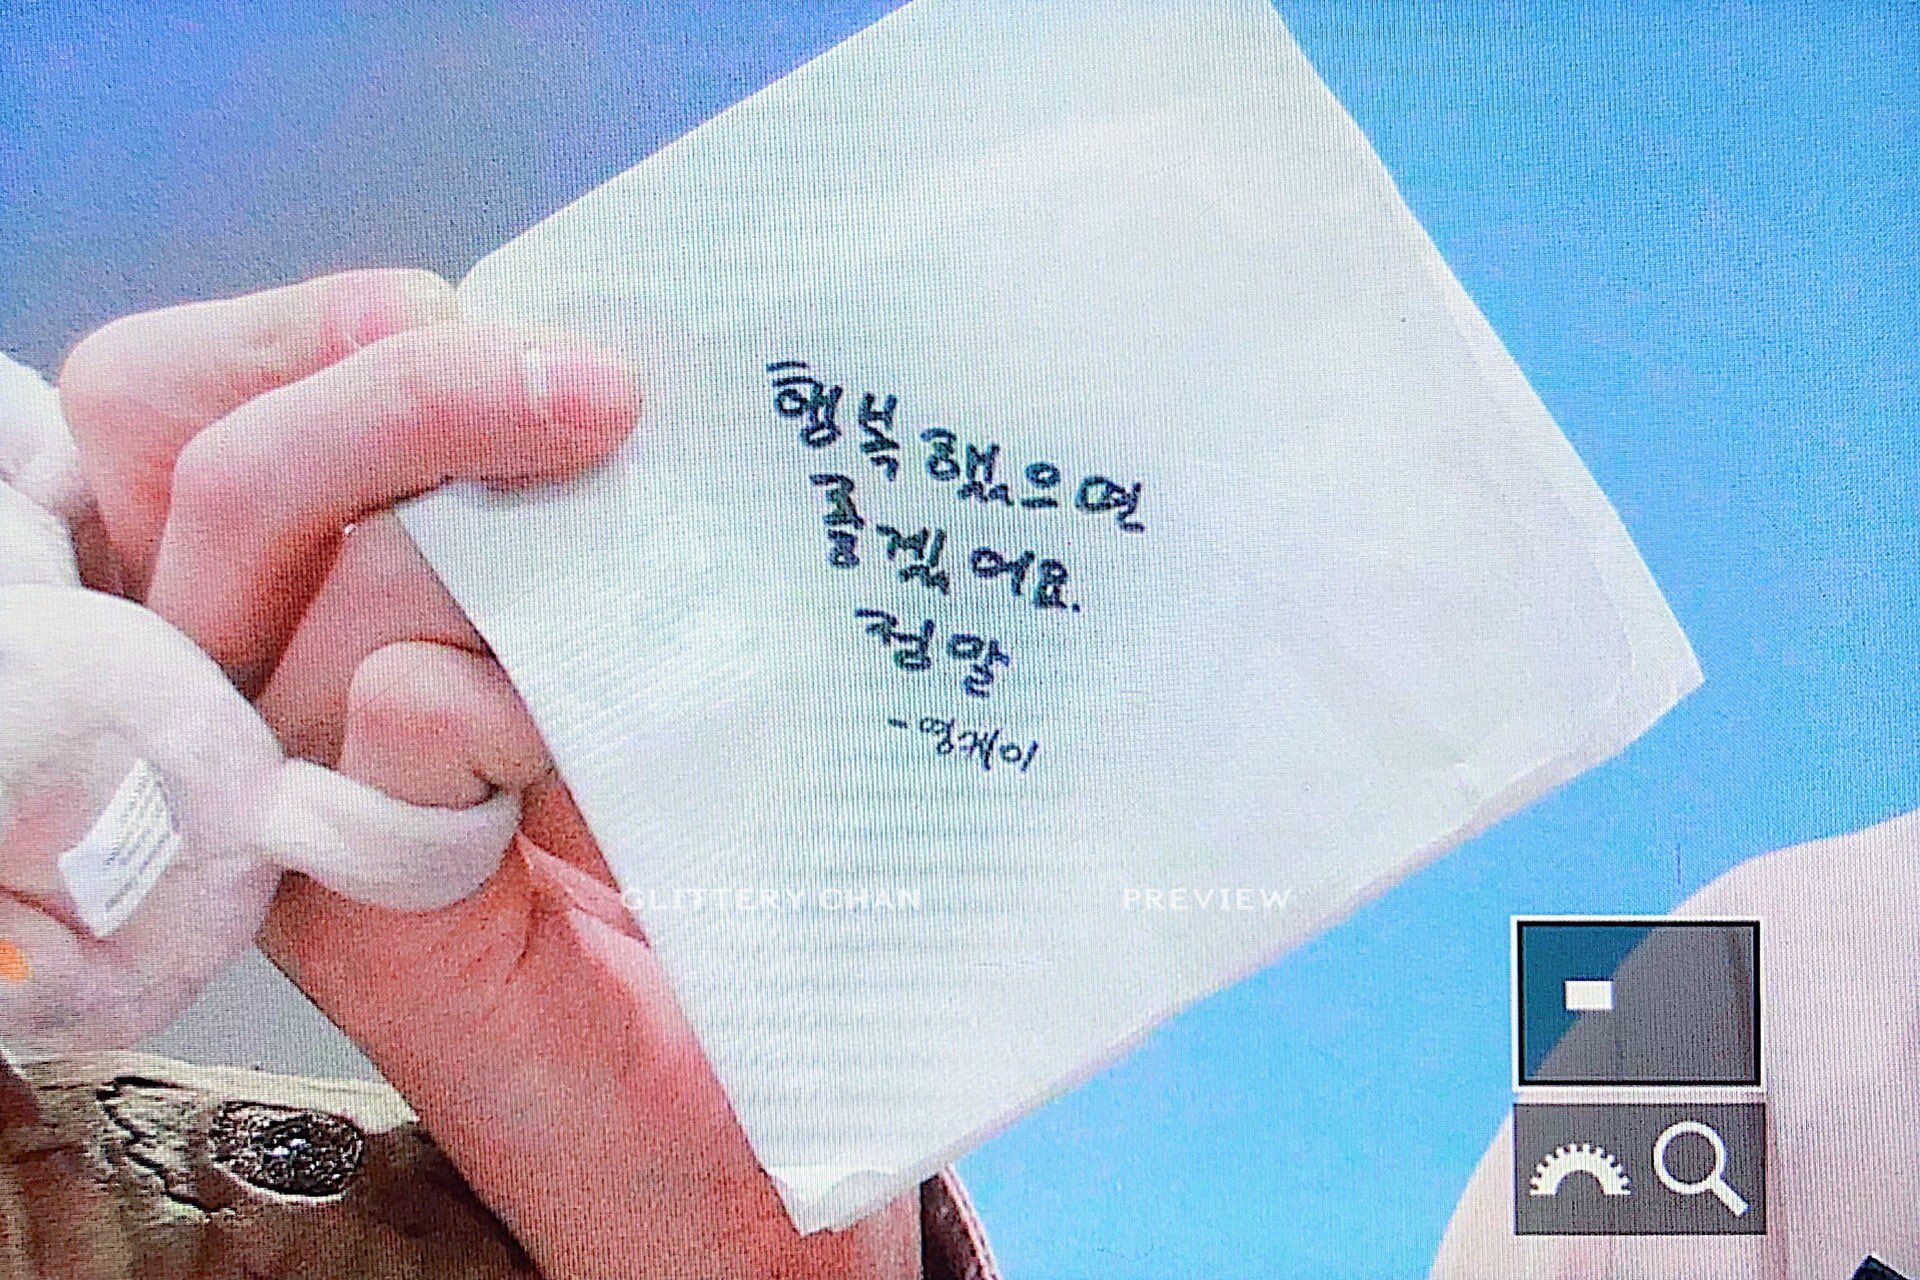 행복했으면
좋겠어요.
정말
- 영케이
GLITTERY CHAN PREVIEW